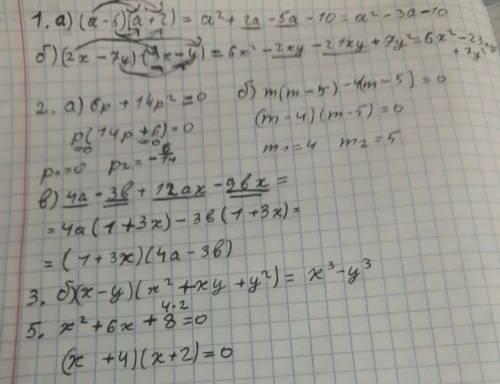 1. а) (a-5)(a+2) = a² + 2a - 5a - 10 = a² - 3a - 10
б) (2x - 7y)(3x - y) = 6x² - 2xy - 21xy + 7y² = 6x² - 23xy
+ 7y²
2. а) 6p + 14p² = 0 б) m(m-5) - 4(m-5) = 0
p(14p + 6) = 0 (m-4)(m-5) = 0
=0 =0
p₁ = 0 p₂ = -6/14 m₁ = 4 m₂ = 5
в) 4a - 3b + 12ax - 9bx =
= 4a(1+3x) - 3b(1+3x) =
= (1+3x)(4a - 3b)
3. б) (x-y)(x² + xy + y²) = x³ - y³
4·2
5. x² + 6x + 8 = 0
(x + 4)(x + 2) = 0